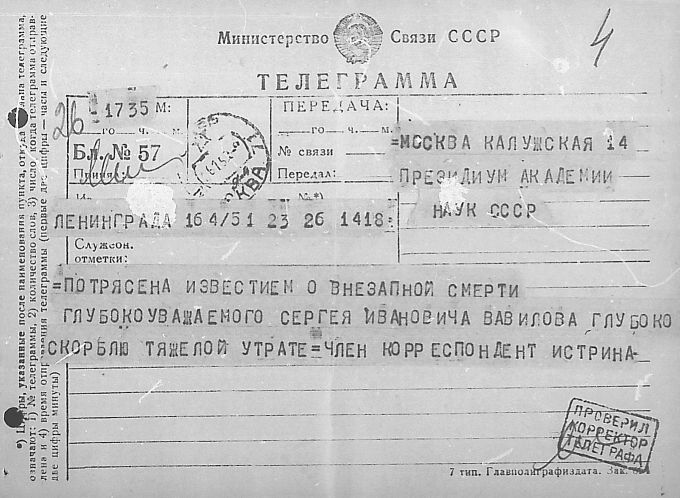 4
Министерство Связи СССР
ТЕЛЕГРАММА
26 1735 М:
го ч. м.
Бл. № 57
ПЕРЕДАЧА:
го ч. м.
№ связи
Передал:
№*)
=МОСКВА КАЛУЖСКАЯ 14
ПРЕЗИДИУМ АКАДЕМИИ
НАУК СССР
ЛЕНИНГРАДА 16 4/51 23 26 1418=
Служебн.
отметки:
=ПОТРЯСЕНА ИЗВЕСТИЕМ О ВНЕЗАПНОЙ СМЕРТИ
ГЛУБОКОУВАЖАЕМОГО СЕРГЕЯ ИВАНОВИЧА ВАВИЛОВА ГЛУБОКО
СКОРБЛЮ ТЯЖЕЛОЙ УТРАТЕ=ЧЛЕН КОРРЕСПОНДЕНТ ИСТРИНА-
ПРОВЕРИЛ
КОРРЕКТОР
ТЕЛЕГРАФА
7 тип. Главполиграфиздата. Зак.
указанные после наименования пункта,
означают: 1) № телеграммы, 2) количество слов, 3) число, когда телеграмма
и 4) время телеграммы (первые две цифры—часы и следующие
две цифры минуты)